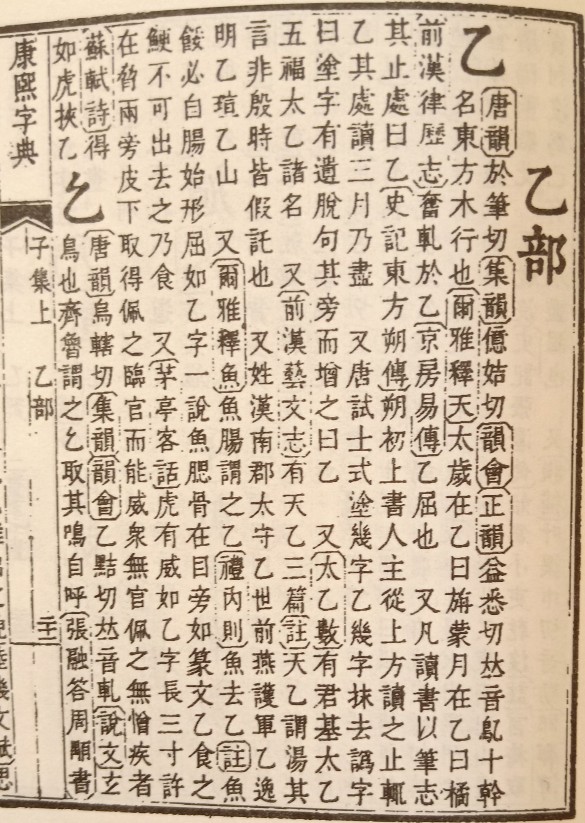 乙部
乙 唐韻於筆切集韻億姞切韻會正韻益悉切𠀤音鳦十幹
名東方木行也爾雅釋天太歲在乙曰旃蒙月在乙曰橘
前漢律歷志奮軋於乙京房易傳乙屈也 又凡讀書以筆志
其止處曰乙史記東方朔傳朔初上書人主從上方讀之止輒
乙其處讀三月乃盡 又唐試士式塗幾字乙幾字抹去譌字
曰塗字有遺脫句其旁而增之曰乙 又太乙數有君基太乙
五福太乙諸名 又前漢藝文志有天乙三篇註天乙謂湯其
言非殷時皆假託也 又姓漢南郡太守乙世前燕護軍乙逸
明乙瑄乙山 又爾雅釋魚魚腸謂之乙禮內則魚去乙註魚
餒必自腸始形屈如乙字一說魚腮骨在目旁如篆文乙食之
鯁不可出去之乃食 又茅亭客話虎有威如乙字長三寸許
在脅兩旁皮下取得佩之臨官而能威衆無官佩之無憎疾者
蘇軾詩得
如虎挾乙
𠃉 唐韻烏轄切集韻韻會乙黠切𠀤音軋說文玄
鳥也齊魯謂之𠃉取其鳴自呼張融答周顒書
康熙字典 子集上 乙部